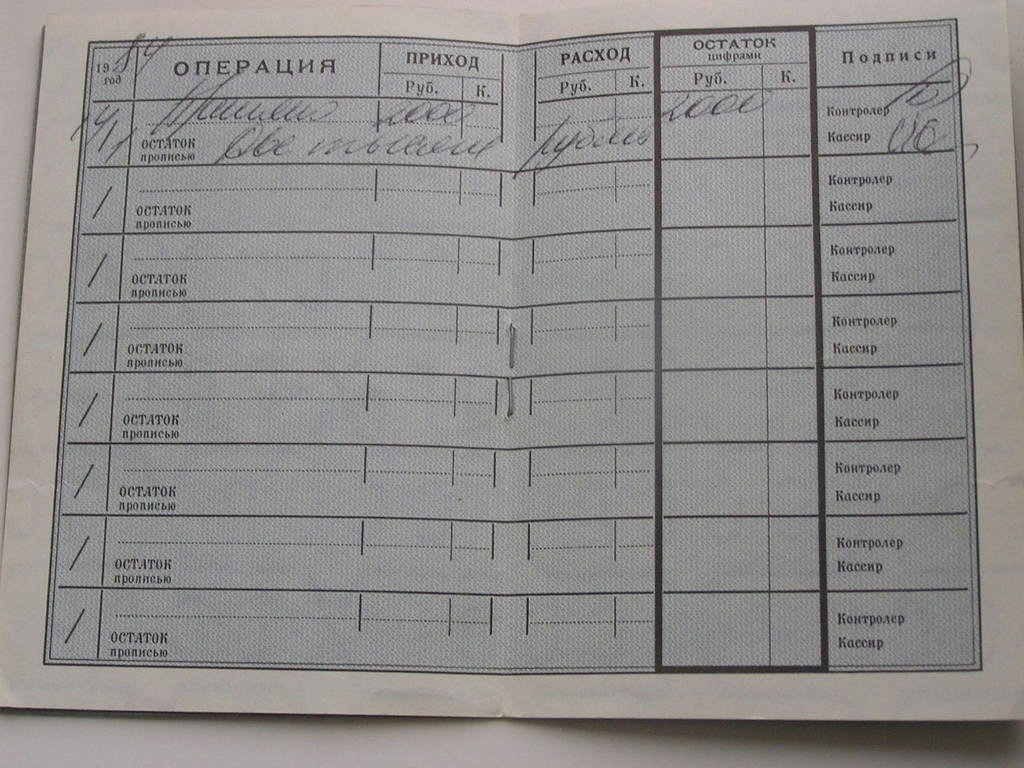 1984 ОПЕРАЦИЯ ПРИХОД РАСХОД ОСТАТОК Подписи
год Руб. К. Руб. К. цифрами
Руб. К.
Принято 2000 2000 Контролер
ОСТАТОК прописью Две тысячи рублей Кассир
/ Контролер
ОСТАТОК прописью Кассир
/ Контролер
ОСТАТОК прописью Кассир
/ Контролер
ОСТАТОК прописью Кассир
/ Контролер
ОСТАТОК прописью Кассир
/ Контролер
ОСТАТОК прописью Кассир
/ Контролер
ОСТАТОК прописью Кассир
/ Контролер
ОСТАТОК прописью Кассир